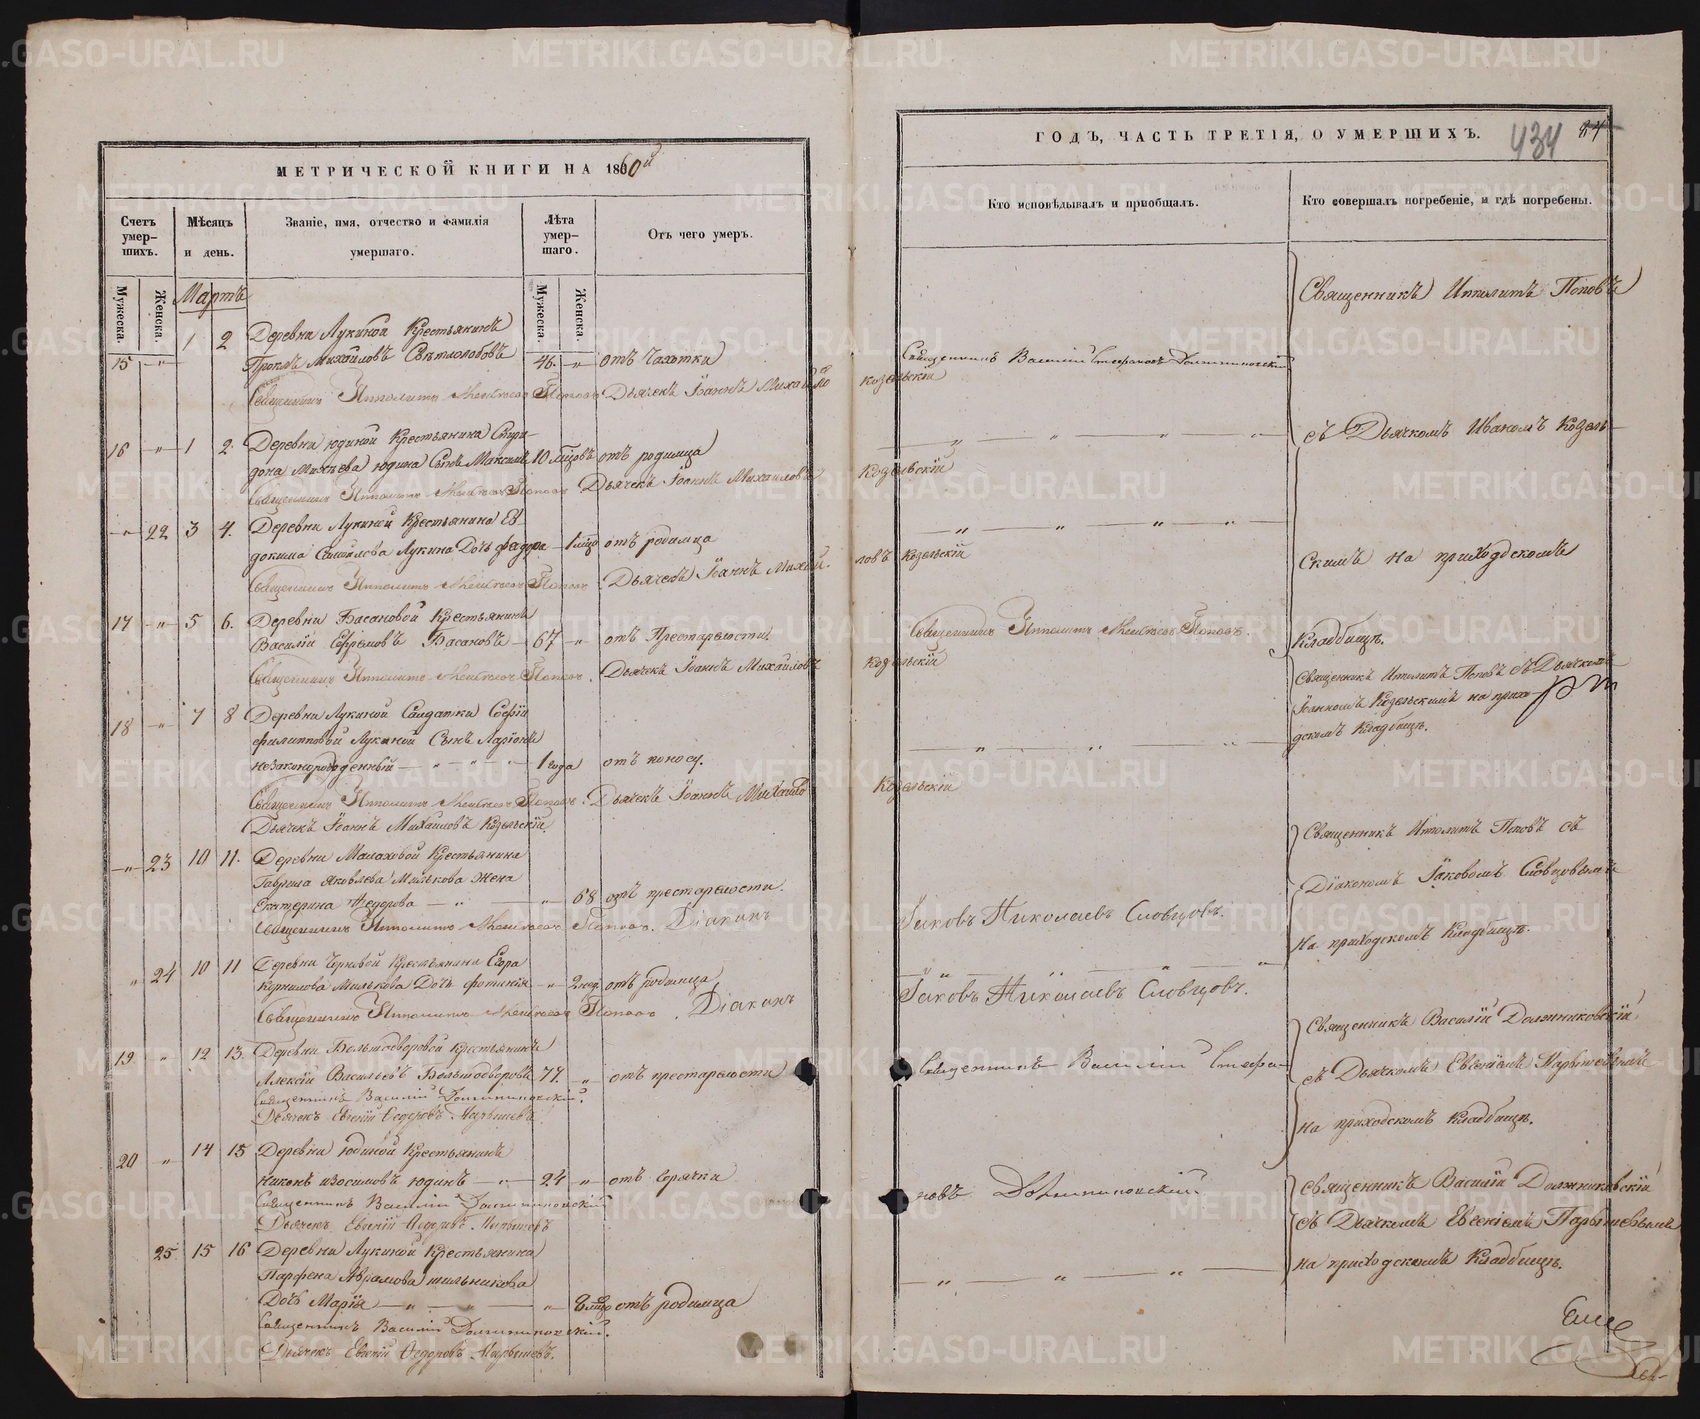 МЕТРИЧЕСКОЙ КНИГИ НА 1860й
Счетъ умер-шихъ.
Мѣсяцъ и день.
Званіе, имя, отчество и фамилія умершаго.
Лѣта умер-шаго.
Отъ чего умеръ.
Мужеска. Женска.
Мужеска. Женска.
Мартъ
1 2 Деревни Лукиной Крестьянинъ
15 " Проклъ Михайловъ Свѣтлолобовъ 46. " отъ Чахотки
Священникъ Ипполитъ Поповъ Дьячекъ Іоаннъ Михайло
16 " 1 2. Деревни Юдиной Крестьянина Спири-
дона Михѣева Юдина Сынъ Максимъ 10 мѣцовъ отъ родимца
Священникъ Ипполитъ Поповъ Дьячекъ Іоаннъ Михайловъ
" 22 3 4. Деревни Лукиной Крестьянина Ев-
докима Самойлова Лукина Дочь Федора 1 мцо отъ родимца
Священникъ Ипполитъ Поповъ. Дьячекъ Іоаннъ Михай-
17 " 5 6. Деревни Басановой Крестьянинъ
Василій Ефремовъ Басановъ 67 " отъ Престарѣлости
Священникъ Ипполитъ Поповъ. Дьячекъ Іоаннъ Михайловъ
18 " 7 8 Деревни Лукиной Солдатки Софіи
Филипповой Лукиной Сынъ Ларіонъ
незаконорожденный " " " 1 года отъ поносу.
Священникъ Ипполитъ Поповъ. Дьячекъ Іоаннъ Михайло
Дьячекъ Іоаннъ Михайловъ Козельскій
" 23 10 11. Деревни Малаховой Крестьянина
Гаврила Яковлева Милькова Жена
Екатерина Федорова " " 68 отъ престарѣлости.
Священникъ Ипполитъ Поповъ. Діаконъ
" 24 10 11 Деревни Черновой Крестьянина Егора
Корнилова Милькова Дочь Фотинія " 2 нед. отъ родимца
Священникъ Ипполитъ Поповъ. Діаконъ
19 " 12 13. Деревни Большедворовой Крестьянинъ
Алексій Васильевъ Большедворовъ 77. " отъ престарѣлости
Священникъ Василій Должниковскій.
Дьячекъ Евгеній Федоровъ Парышевъ.
20 " 14 15 Деревни Юдиной Крестьянинъ
Никонъ Изосимовъ Юдинъ " 24 " отъ горячки
Священникъ Василій Должниковскій
Дьячекъ Евгеній Федоровъ Парышевъ
25 15 16 Деревни Лукиной Крестьянина
Парфена Абрамова Мильникова
Дочь Марія " " " отъ родимца
Священникъ Василій Должниковскій.
Дьячекъ Евгеній Федоровъ Парышевъ.
ГОДЪ, ЧАСТЬ ТРЕТІЯ, О УМЕРШИХЪ.
434
84
Кто исповѣдывалъ и пріобщалъ.
Кто совершалъ погребеніе, и гдѣ погребены.
Священникъ Ипполитъ Поповъ
Священникъ Василій Стефановъ Должниковскій
Козельскій
" " " "
съ Дьячкомъ Иваномъ Козель-
Козельскій
" " " "
ловъ Козельскій
скимъ на приходскомъ
Священникъ Ипполитъ Поповъ.
Кладбищѣ.
Козельскій
Священникъ Ипполитъ Поповъ съ Дьячкомъ
Іоанномъ Козельскимъ на прихо-
дскомъ Кладбищѣ.
" " "
Козельскій
Священникъ Ипполитъ Поповъ съ
Діакономъ Іаковомъ Словцовымъ
Іаковъ Николаевъ Словцовъ.
На приходскомъ Кладбищѣ.
Іаковъ Николаевъ Словцовъ.
Священникъ Василій Должниковскій
Священникъ Василій Стефа-
съ Дьячкомъ Евгеніемъ Парышевымъ
на приходскомъ Кладбищѣ.
новъ Должниковскій
Священникъ Василій Должниковскій
съ Дьячкомъ Евгеніемъ Парышевымъ
на приходскомъ Кладбищѣ.
" " "
METRIKI.GASO-URAL.RU